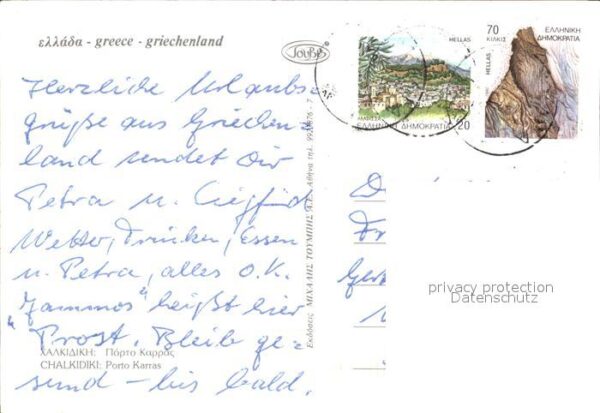 ελλάδα - greece - griechenland
Herzliche Urlaubs
grüße aus Griechen-
land sendet Dir
Petra u. Siegfried
Wetter, Trinken, Essen
u. Petra, alles O.K.
"Jammos" heißt hier
"Prost. Bleib ge-
ΧΑΛΚΙΔΙΚΗ: Πόρτο Καρράς
CHALKIDIKI: Porto Karras
sund - bis bald.
Εκδόσεις ΜΙΧΑΛΗΣ ΤΟΥΜΠΗΣ Α.Ε. Αθήνα τηλ.
HELLAS
ΕΛΛΗΝΙΚΗ ΔΗΜΟΚΡΑΤΙΑ 20
70
ΚΙΛΚΙΣ
ΕΛΛΗΝΙΚΗ
ΔΗΜΟΚΡΑΤΙΑ
HELLAS
privacy protection
Datenschutz